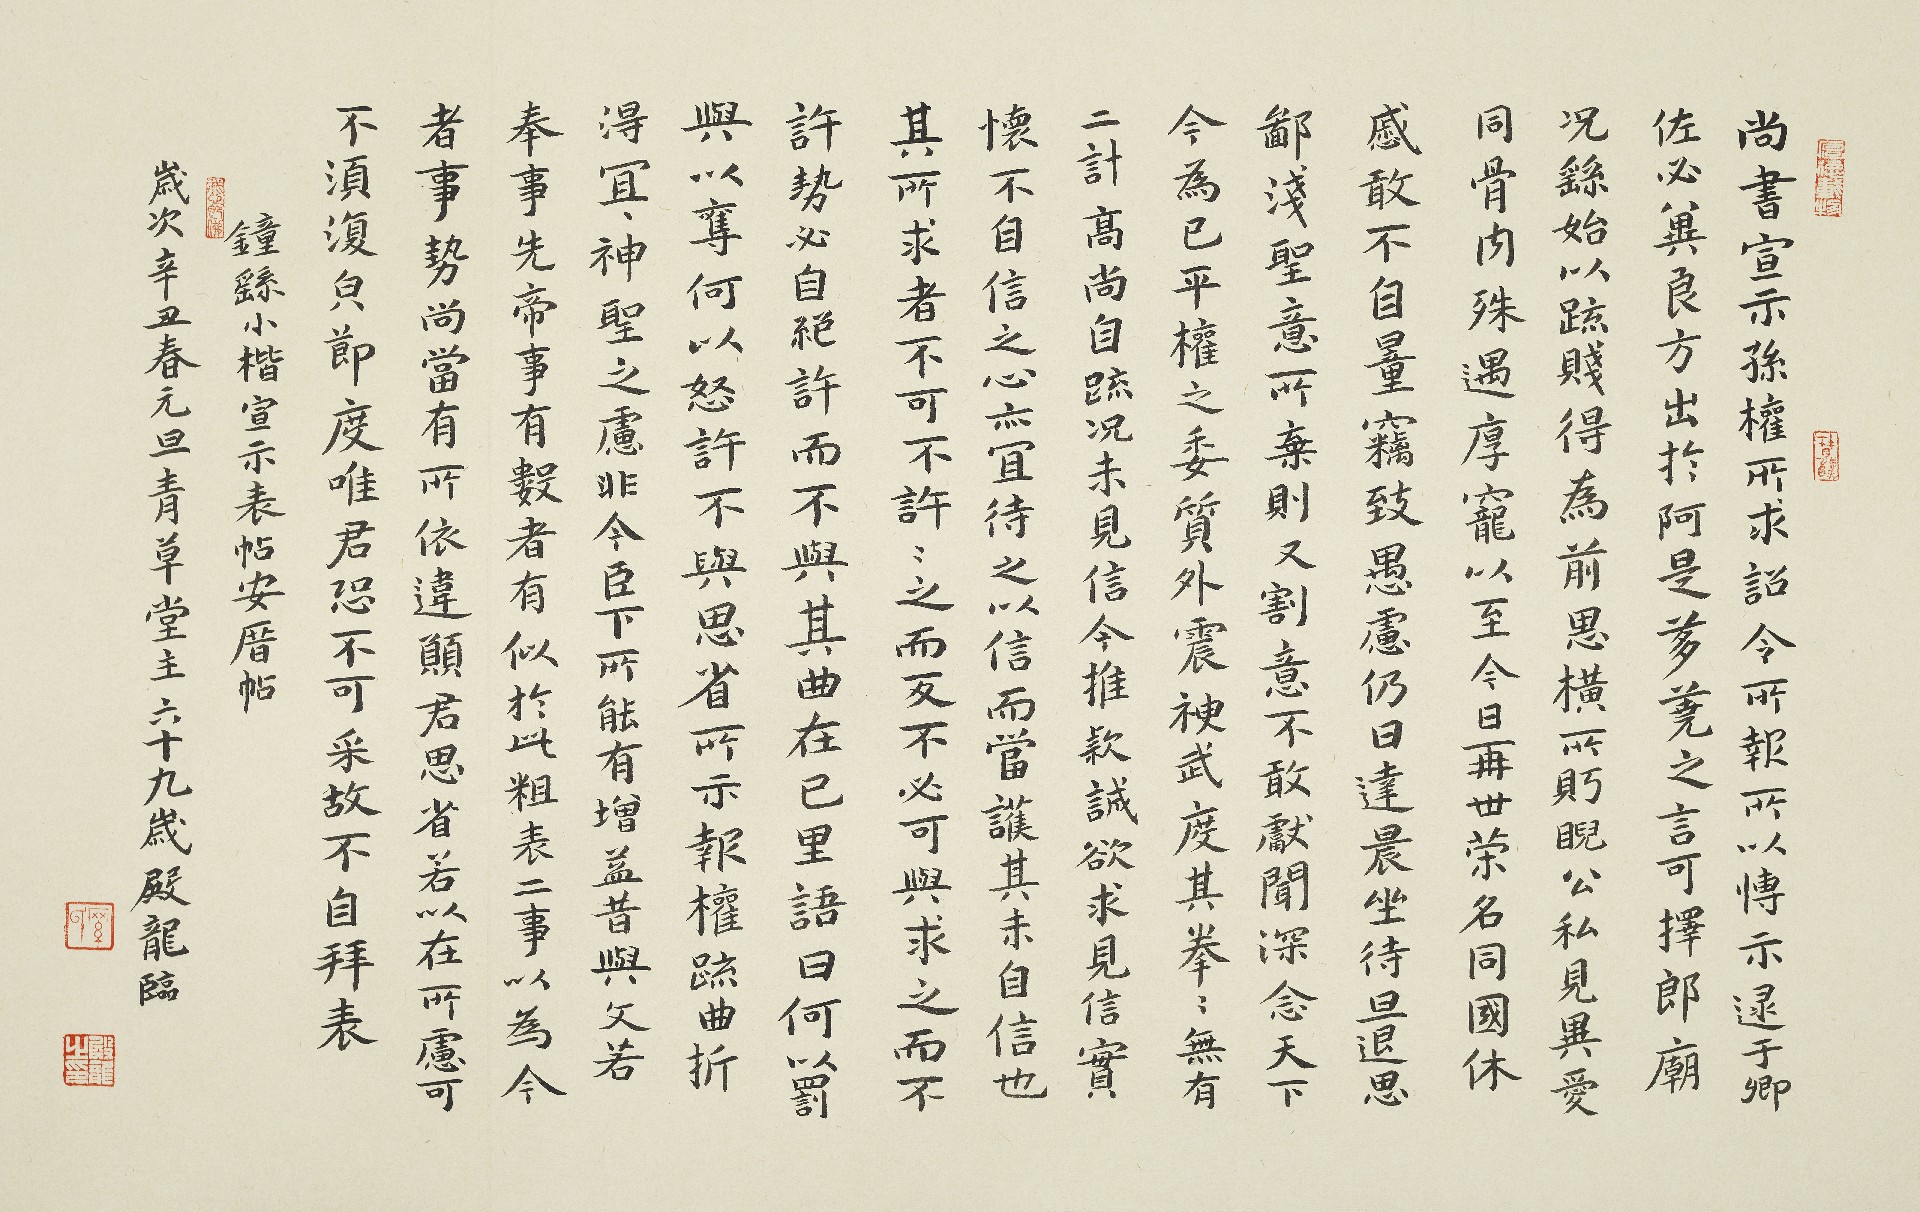 尚書宣示孫權所求詔令所報所以博示逮于卿
佐必冀良方出於阿是芻蕘之言可擇郎廟
况繇始以疏賤得為前恩橫所眄睨公私見異愛
同骨肉殊遇厚寵以至今日再世榮名同國休
慼敢不自量竊致愚慮仍日達晨坐待旦退思
鄙淺聖意所棄則又割意不敢獻聞深念天下
今為已平權之委質外震神武度其拳〻無有
二計高尚自疏况未見信今推款誠欲求見信實
懷不自信之心亦宜待之以信而當護其未自信也
其所求者不可不許〻之而反不必可與求之而不
許勢必自絕許而不與其曲在已里語曰何以罰
與以奪何以怒許不與思省所示報權疏曲折
得宜〻神聖之慮非今臣下所能有增益昔與文若
奉事先帝事有數者有似於此粗表二事以為今
者事勢尚當有所依違願君思省若以在所慮可
不須復皃節度唯君恐不可采故不自拜表
鐘繇小楷宣示表帖安厝帖
歲次辛丑春元旦青草堂主六十九歲殿龍臨
殿龍之印